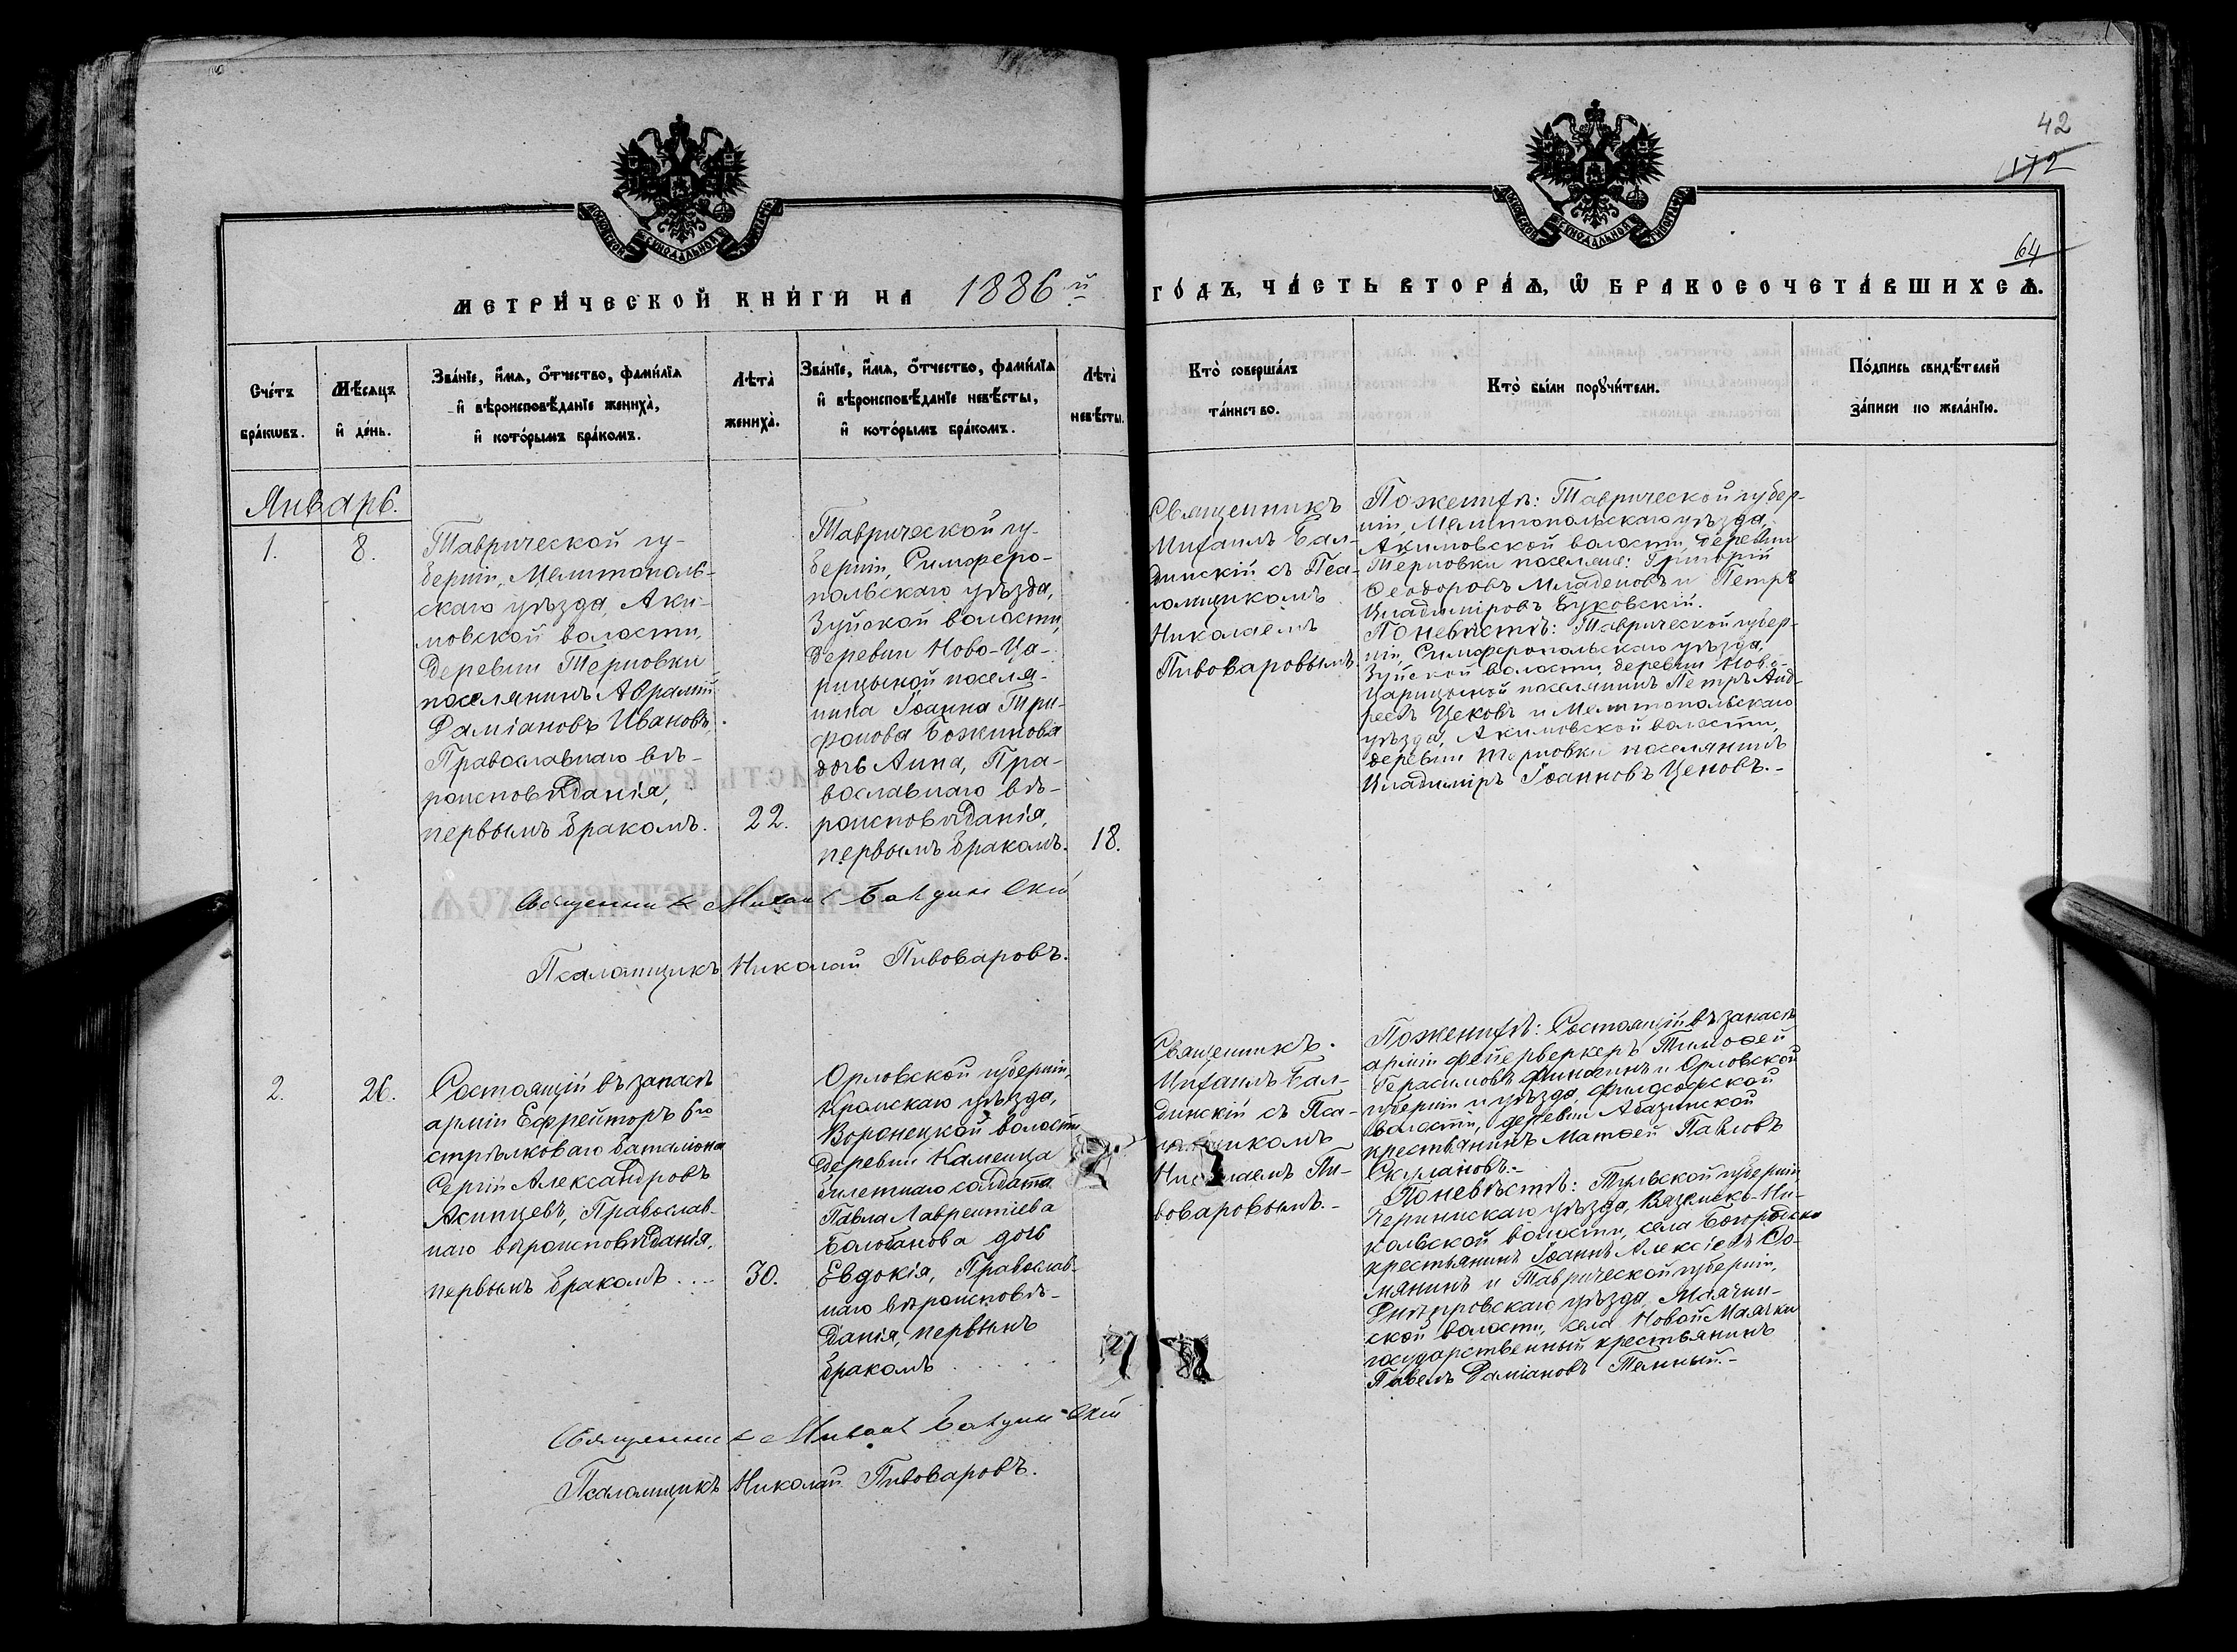 42
172
64
МОСКОВСКОЙ СѴНОДАЛЬНОЙ ТИПОГРАФІИ
МОСКОВСКОЙ СѴНОДАЛЬНОЙ ТИПОГРАФІИ
МЕТРИ́ЧЕСКОЙ КНИ́ГИ НА 1886й ГО́ДЪ, ЧА́СТЬ ВТОРА́Ѧ, Ѿ БРАКОСОЧЕТА́ВШИХСѦ.
Сче́тъ
бра́кѡвъ.
Мѣ́сяцъ
и҆ де́нь.
Зва́нїе, и҆́мя, ѻ҆́тчество, фами́лїя
и҆ вѣроисповѣ́данїе жениха̀,
и҆ кото́рымъ бра́комъ.
Лѣта̀
жениха̀.
Зва́нїе, и҆́мя, ѻ҆́тчество, фами́лїя
и҆ вѣроисповѣ́данїе невѣ́сты,
и҆ кото́рымъ бра́комъ.
Лѣта̀
невѣ́сты.
Кто̀ соверша́лъ
та́инство.
Кто̀ бы́ли порꙋчи́тели.
По́дпись свидѣ́телей
за́писи по жела́нїю.
Январь.
1.
8.
Таврической гу-
берніи, Мелитополь-
скаго уѣзда, Аки-
мовской волости,
деревни Терновки
поселянинъ Аврамій
Даміановъ Ивановъ,
Православнаго вѣ-
роисповѣданія,
первымъ бракомъ.
22.
Таврической гу-
берніи, Симферо-
польскаго уѣзда,
Зуйской волости,
деревни Ново-Ца-
рицыной поселя-
нина Іоанна Три-
фонова Божинова
дочь Анна, Пра-
вославнаго вѣ-
роисповѣданія,
первымъ бракомъ.
18.
Священникъ
Михаилъ Бал-
динскій съ Пса-
ломщикомъ
Николаемъ
Пивоваровымъ.
По женихѣ: Таврической губер-
ніи, Мелитопольскаго уѣзда,
Акимовской волости, деревни
Терновки поселяне: Григорій
Ѳеодоровъ Младеновъ и Петръ
Владиміровъ Буковскій.
По невѣстѣ: Таврической губер-
ніи, Симферопольскаго уѣзда,
Зуйской волости, деревни Ново-
Царицыной поселянинъ Петръ Анд-
реевъ Цековъ и Мелитопольскаго
уѣзда, Акимовской волости,
деревни Терновки поселянинъ
Владиміръ Іоанновъ Ценовъ.-
Священникъ Михаилъ Балдинскій
Псаломщикъ Николай Пивоваровъ.
2.
26.
Состоящій въ запасѣ
арміи Ефрейторъ 6го
стрѣлковаго баталіона
Сергій Александровъ
Асипцевъ, Православ-
наго вѣроисповѣданія,
первымъ бракомъ....
30.
Орловской губерніи,
Кромскаго уѣзда,
Воронецкой волости
деревни Каменца
билетнаго солдата
Павла Лаврентіева
Балабанова дочь
Евдокія, Православ-
наго вѣроисповѣ-
данія, первымъ
бракомъ.....
21
Священникъ.
Михаилъ Бал-
динскій съ Пса-
ломщикомъ
Николаемъ Пи-
воваровымъ.-
По женихѣ: Состоящій въ запасѣ
арміи фейерверкеръ Тимоѳей
Герасимовъ и Орловской
губерніи и уѣзда,
волости, деревни
крестьянинъ Матѳей Павловъ
По невѣстѣ: Тульской губерніи,
уѣзда, Ни-
кольской волости, села
крестьянинъ Іоаннъ Алексіевъ Ѳо-
мянинъ и Таврической губерніи,
Днѣпровскаго уѣзда, Маячин-
ской волости, села Новой Маячки
государственный крестьянинъ
Павелъ Даміановъ Темный.-
Священникъ Михаилъ Балдинскій
Псаломщикъ Николай Пивоваровъ.